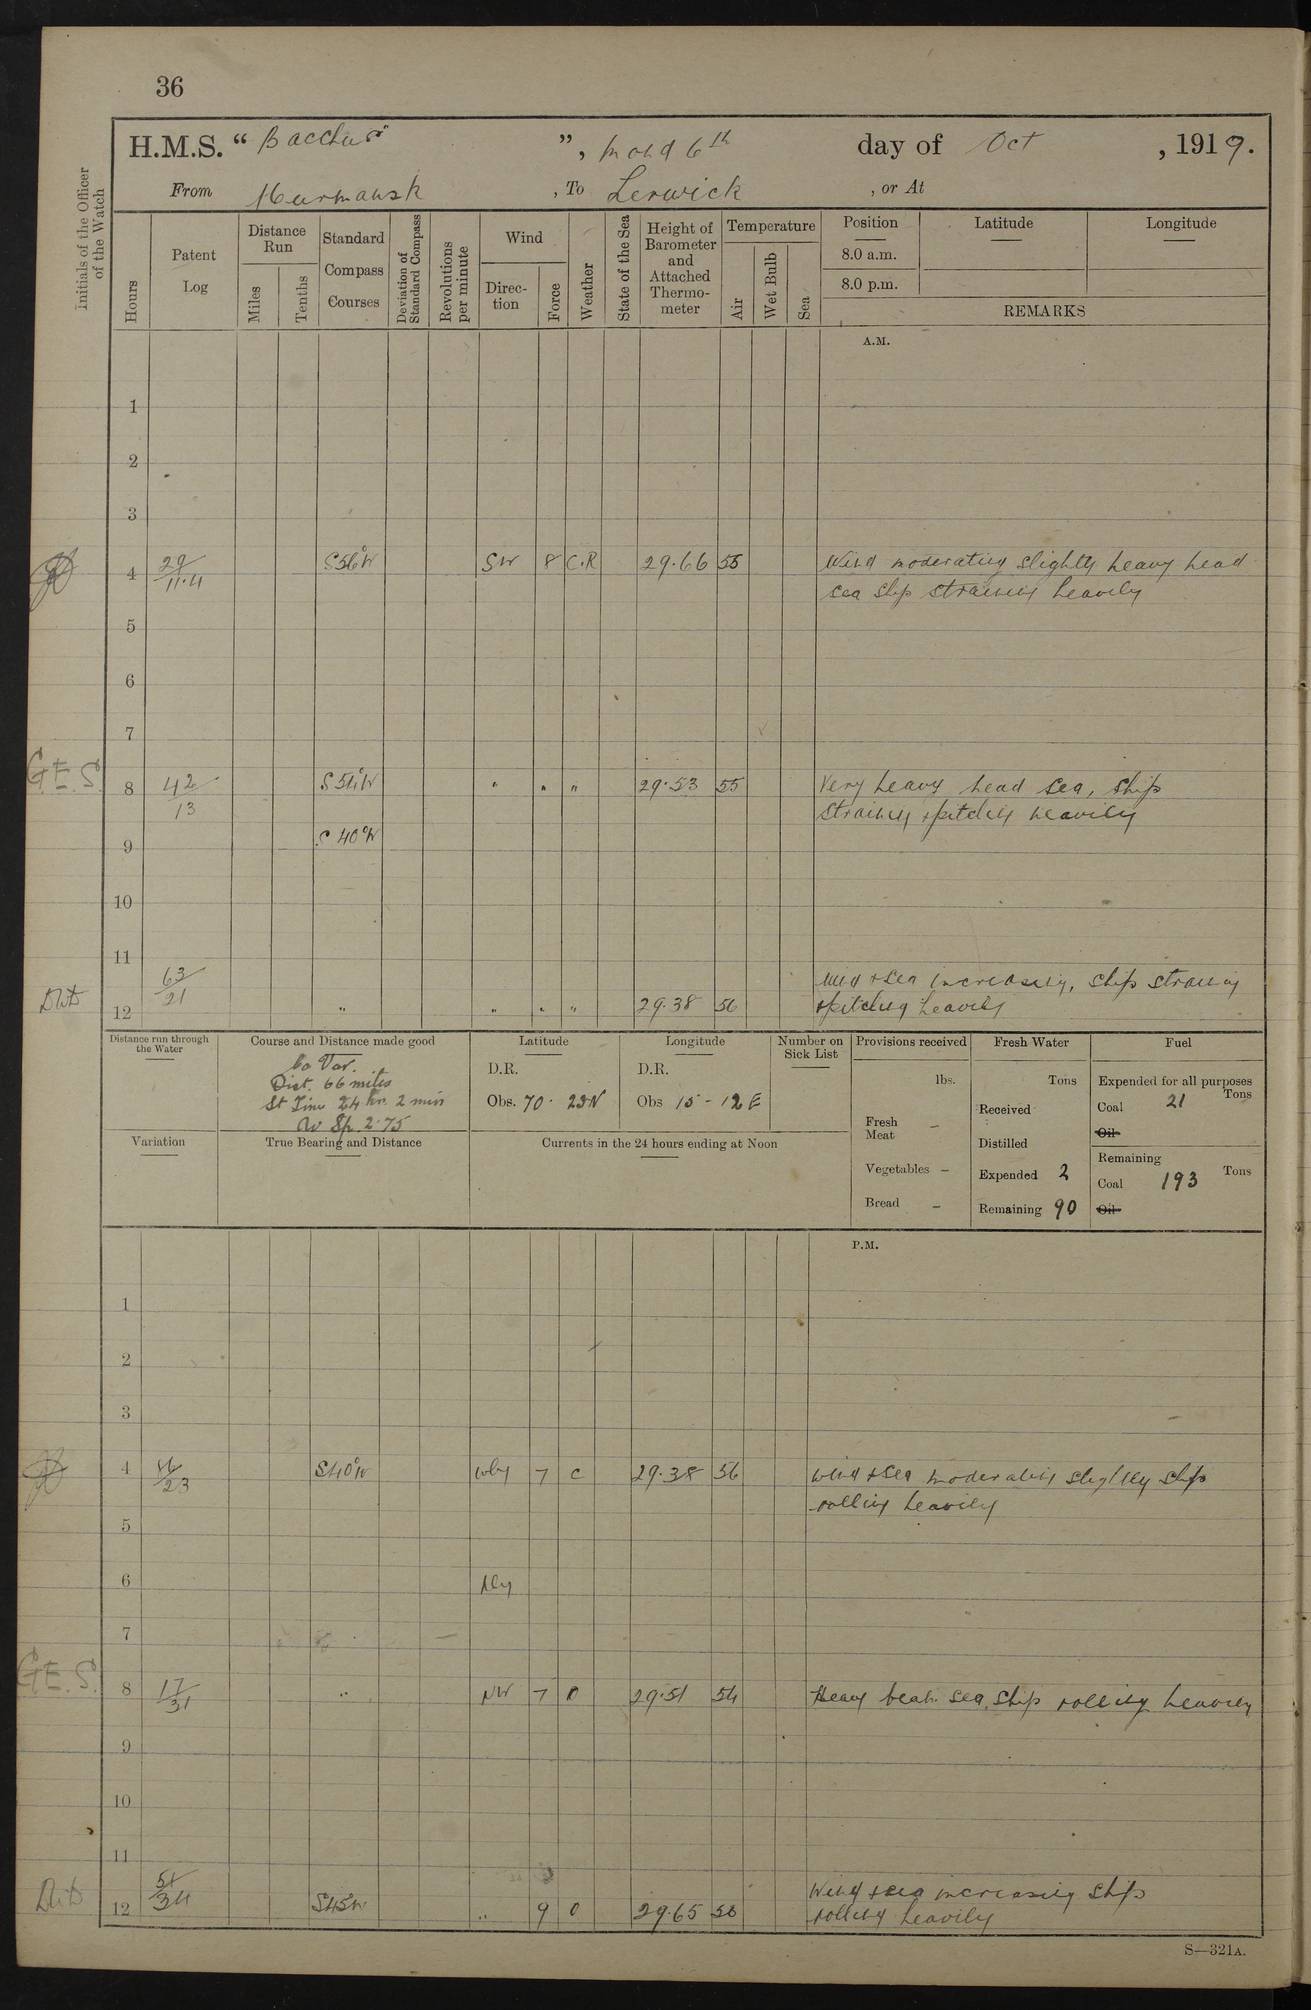 36
H.M.S. “ Bacchus ”, Mond 6th day of Oct , 1919.
From Murmansk , To Lerwick , or At
Initials of the Officer of the Watch
Hours
Patent Log
Distance Run
Miles
Tenths
Standard Compass Courses
Deviation of Standard Compass
Revolutions per minute
Wind
Direction
Force
Weather
State of the Sea
Height of Barometer and Attached Thermometer
Temperature
Air
Wet Bulb
Sea
Position
8.0 a.m.
8.0 p.m.
Latitude
Longitude
REMARKS
A.M.
1
2
3
4 29/11.4 S56°W SW 8 C.R 29.66 55 Wind moderating slightly heavy head
sea ship straining heavily
5
6
7
G.E.S. 8 42/13 S54°W " " " 29.53 55 Very heavy head sea, ship
straining & pitching heavily
9 S 40°W
10
11
12 63/21 " " " " 29.38 56 Wind & sea increasing, ship straining
& pitching heavily
Distance run through the Water
Course and Distance made good
Co Var.
Dist. 66 miles
St Time 24 hrs. 2 min
Av Sp. 2.75
Latitude
D.R.
Obs. 70 - 23N
Longitude
D.R.
Obs 15 - 12 E
Number on Sick List
Provisions received
lbs.
Fresh Meat –
Vegetables –
Bread –
Fresh Water
Tons
Received
Distilled
Expended 2
Remaining 90
Fuel
Expended for all purposes
Tons
Coal 21
Oil
Remaining
Tons
Coal 193
Oil
Variation
True Bearing and Distance
Currents in the 24 hours ending at Noon
P.M.
1
2
3
4 /23 S40°W Wly 7 C 29.38 56 Wind & sea moderating slightly ship
rolling heavily
5
6 Nly
7
G.E.S. 8 17/31 " NW 7 O 29.51 54 Heavy beam sea, ship rolling heavily
9
10
11
12 51/34 S45W " 9 O 29.65 Wind & sea increasing ship
rolling heavily
S—321A.